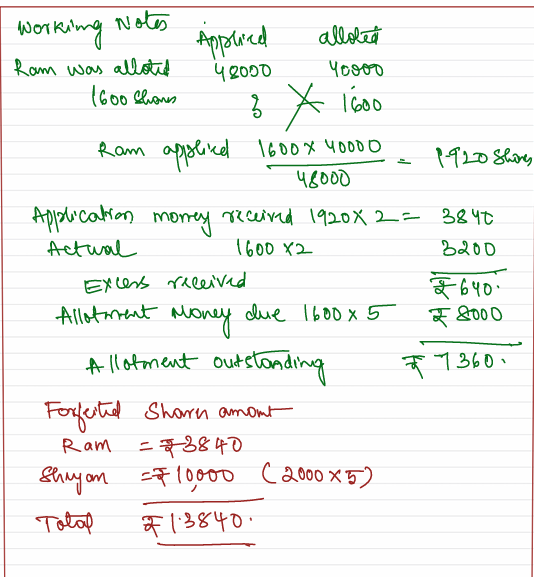 Working Notes
Applied alloted
Ram was alloted 48000 40000
1600 Shares ? 1600
Ram applied 1600 x 40000 = 1920 Shares
48000
Application money received 1920 x 2 = 3840
Actual 1600 x 2 3200
Excess received ₹ 640.
Allotment Money due 1600 x 5 ₹ 8000
Allotment outstanding ₹ 7360.
Forfeited Shares amount
Ram = ₹ 3840
Shyam = ₹ 10,000 (2000 x 5)
Total ₹ 13840.